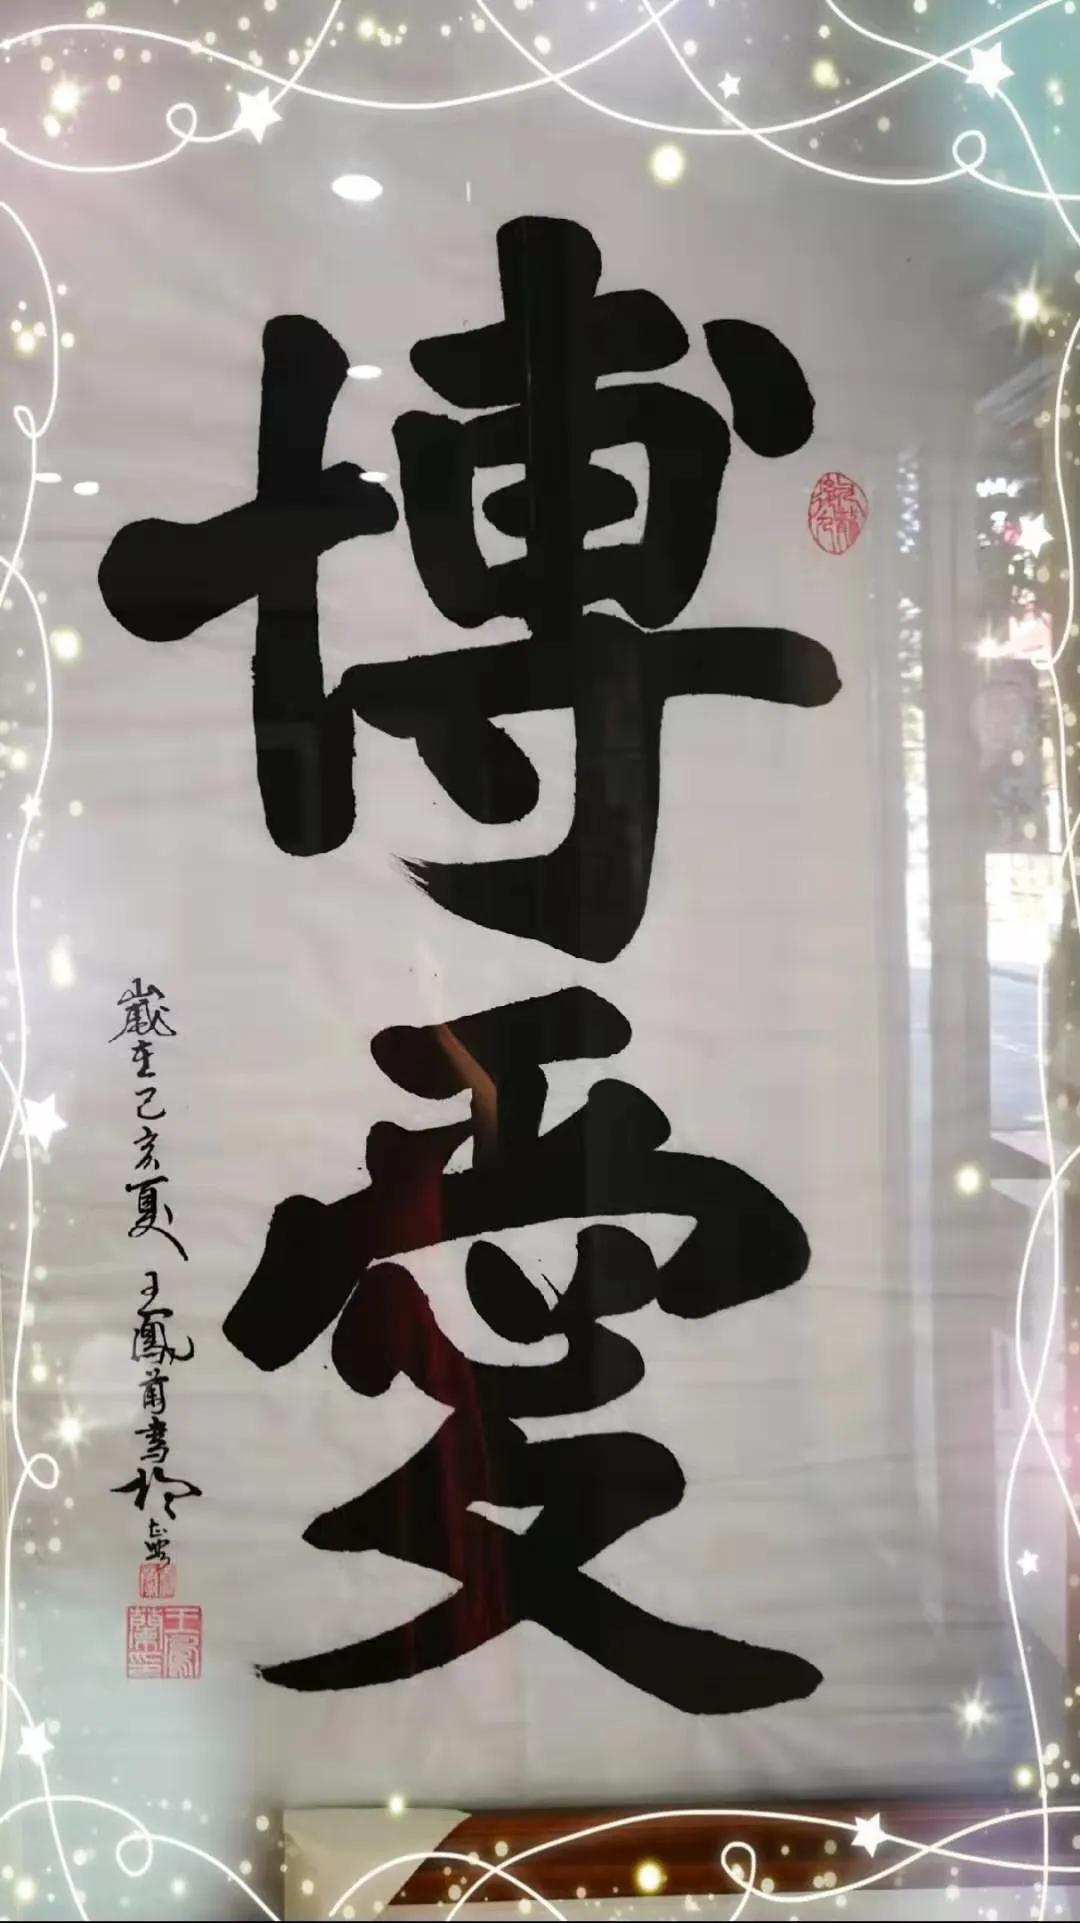 博愛
歲在己亥夏 王鳳蘭書於